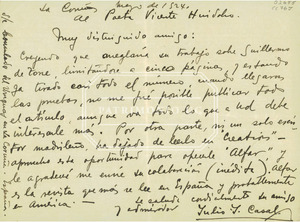 La Coruña mayo de 1924.
Al Poeta Vicente Huidobro.
Muy distinguido amigo:
Creyendo que arreglaría su trabajo sobre Guillermo
de Torre, limitándose a cinco páginas, y estando
ya tirado casi todo el número cuando llegaron
las pruebas, no me fué posible publicar todo
el artículo, aunque era todo lo que a ud debe
interesarle más. Por otra parte, ni un solo escri-
tor madrileño, ha dejado de leerlo en "Creation" –
aprovecho esta oportunidad para ofrecerle "Alfar" y
le agradeceré me envíe su colaboración (inédita). Alfar
es la revista que más se lee en España y probablemente
en América. – Le saluda cordialmente su amigo
y admirador
Julio J. Casal
S/c Consulado del Uruguay en La Coruña. España.